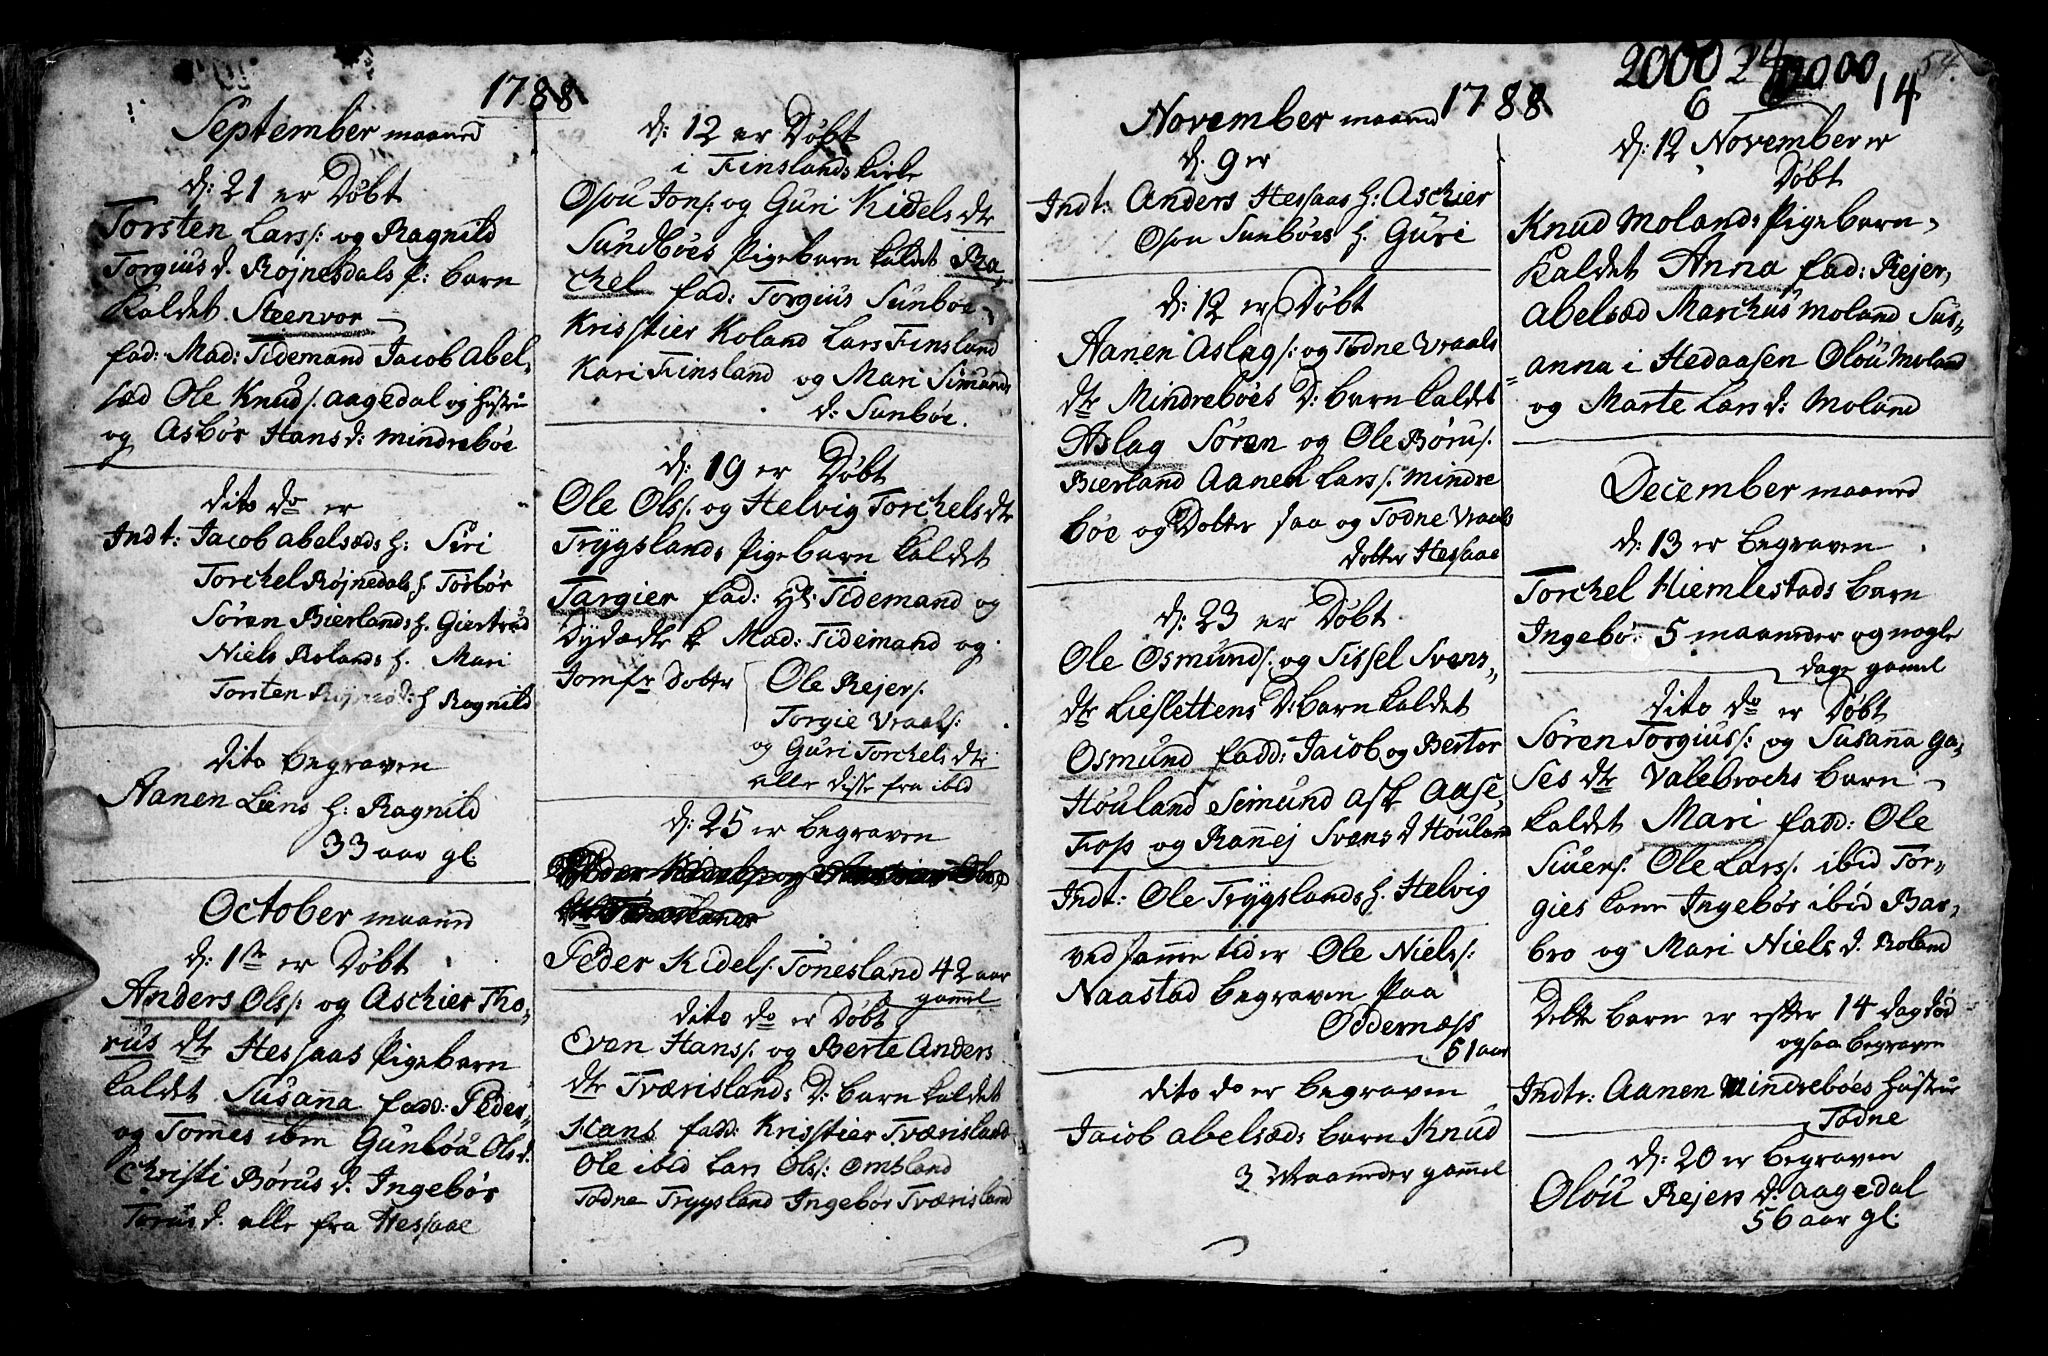 1788
September maaned
d: 21 er Døbt
Torsten Lars s: og Ragnild
Torgius d. Røjnesdals P: barn
kaldet Steenvor
fad: Mad: Tidemand Jacob Abel-
sæd Ole Knud s. aagedal og Hustru
og Asbør Hans d: mindrebøe
dito do er
Indt: Jacob abelsæds h: Siri
Torchel Røjnedals h. Torbør
Søren Bierlands h. Giertrud
Niels Rolands h. Mari
Torsten h Ragnild
dito begraven
Aanen Liens h: Ragnild
33 aar gl.
October maaned
d: 1ste er Døbt
Anders Ols s: og Aschier Tho-
rus dtr Hessaas Pigebarn
kaldet Susanna fadd: Peder
og Tomes ibm Gunboú Ols d:
Christi Børus d. Ingebør
Torus d. alle fra Hessaae
d: 12 er Døbt
i Finslands kirke
Osou Jon s: og Guri Kidels dtr
Sundbøes Pigebarn kaldet Ra-
chel fad: Torgius Sunbøe
Krisstier Roland Lars Finsland
Kari Finsland og Mari Simunds
d: Sunbøe.
d: 19 er Døbt
Ole Ols s: og Helvig Torchels dtr
Trygslands Pigebarn kaldet
Targier fad: Hr: Tidemand og
Mad: Tidemand og
Jomfr dotter Ole Rejer s:
Torgie Vraal s:
og Guri Torchels dtr
alle disse fra ibid
d: 25 er begraven
Peder Kidel s: Tonesland 42 aar
gammel
dito do er Døbt
Even Hans s: og Berte Anders
dtr Tværislands D: barn kaldet
Hans fadd: Krisstier Tværisland
Ole ibid Lars Ols s: Omsland
Todne Trygsland Ingebør Tværisland
November maaned 1788
d. 9 er
Indt: Anders Hessaas h: Aschier
Osou Sunbøes h. Guri
d: 12 er Døbt
Aanen Aslag s: og Todne Vraals
dtr Mindrebøes D: barn kaldet
Aslag Søren og Ole Børu s:
Bierland Aanen Lars s. Mindre
bøe og Dotter saa og Todne Vraals
dotter Hessaae
d: 23 er Døbt
Ole Osmund s: og Sissel Svens-
dtr Lieslettens D: barn kaldet
Osmund fadd: Jacob og Bertor
Høuland Seimund Ask Aase
Foss og Rannej Svens d Høuland
Indt: Ole Trygslands h. Helvig
ved samme tid er Ole Niels s:
Naastad begraven paa
Oddernæss
51 aar
dito do er begraven
Jacob abelsæds barn Knud
3 Maaneder gammel
2000 2000 54.
6 14
d: 12 November er
Døbt
Knud Molands Pigebarn
kaldet Anna fad: Rejer
abelsæd Marchus Moland Sus-
anna i Hedaasen Oloú Moland
og Marte Lars d: Moland
December maaned
d: 13 er begraven
Torchel Hiemlestads barn
Ingebø: 5 maaneder og nogle
dage gamel
dito do er Døbt
Søren Torgius s: og Susanna Ga-
ses dtr Valebrochs barn
kaldet Mari fadd: Ole
Siver s: Ole Lars s. ibid Tor-
gies kone Ingebør ibid Bar-
bro og Mari Niels d. Roland
Dette barn er efter 14 dag død
ogsaa begraven
Indtr: Aanen Mindrebøes Hustru
Todne
d: 20 er begraven
Oloú Rejers d: aagedal
56 aar gl: